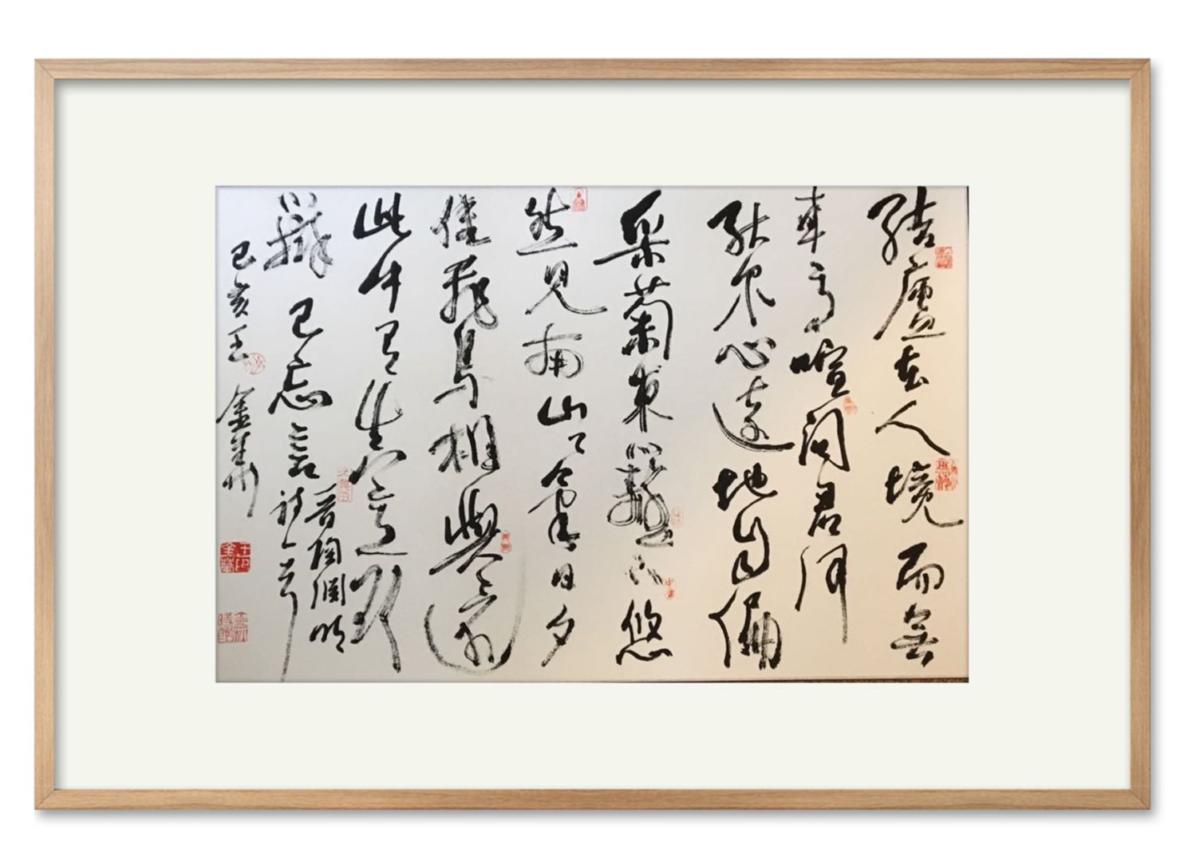 結廬在人境而無
車馬喧問君何
能尔心遠地自偏
采菊東籬下悠
然見南山々氣日夕
佳飛鳥相與還
此中有真意欲
辯已忘言
晋陶渊明
诗一首
己亥王金華